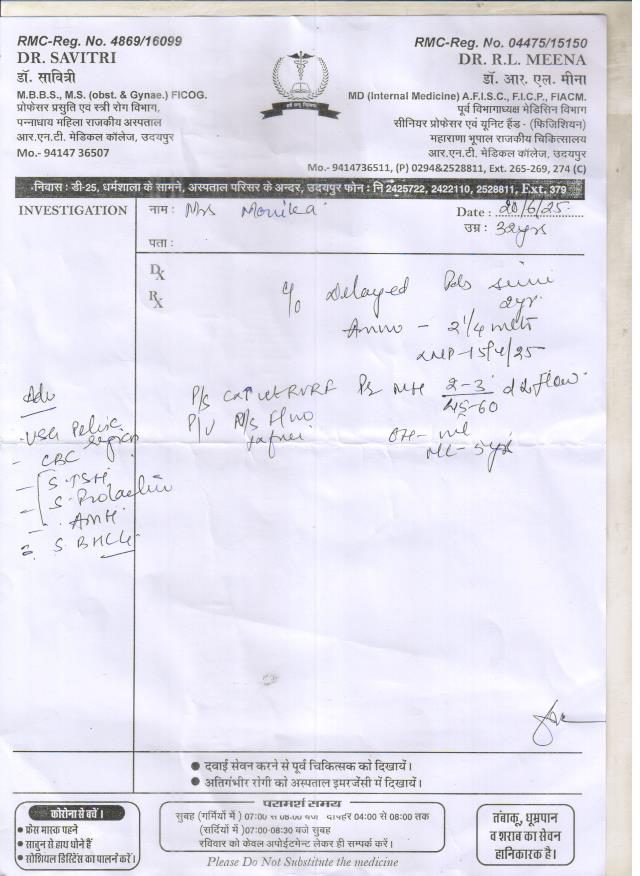 RMC-Reg. No. 4869/16099
DR. SAVITRI
डॉ. सावित्री
M.B.B.S., M.S. (obst. & Gynae.) FICOG.
प्रोफेसर प्रसुति एवं स्त्री रोग विभाग,
पन्नाधाय महिला राजकीय अस्पताल
आर.एन.टी. मेडिकल कॉलेज, उदयपुर
Mo.- 94147 36507
RMC-Reg. No. 04475/15150
DR. R.L. MEENA
डॉ. आर. एल. मीना
MD (Internal Medicine) A.F.I.S.C., F.I.C.P., FIACM.
पूर्व विभागाध्यक्ष मेडिसिन विभाग
सीनियर प्रोफेसर एवं यूनिट हैंड - (फिजिशियन)
महाराणा भूपाल राजकीय चिकित्सालय
आर.एन.टी. मेडिकल कॉलेज, उदयपुर
Mo.- 9414736511, (P) 0294&2528811, Ext. 265-269, 274 (C)
निवास : डी-25, धर्मशाला के सामने, अस्पताल परिसर के अन्दर, उदयपुर फोन : नि 2425722, 2422110, 2528811, Ext. 379
INVESTIGATION
नाम : Mrs Monika
Date : 20/6/25
उम्र : 32yrs
पता :
Dx
Rx
c/o Delayed
2yr.
- 2 1/4
LMP-15/4/25
P/S
2-3
45-60
flow
P/V
OH- nil
ML- 5yrs
Adv
- USG Pelvic
- CBC
- S. TSH
- S. Prolactin
- AMH
S. BHCG
● दवाई सेवन करने से पूर्व चिकित्सक को दिखायें।
● अतिगंभीर रोगी को अस्पताल इमरजेंसी में दिखायें।
कोरोना से बचें।
● फ्रेस मास्क पहने
● साबुन से हाथ धोने हैं
● सोशियल डिस्टिेंस का पालने करें।
परामर्श समय
सुबह (गर्मियों में) 07:00 से 08:00 बजे दोपहर 04:00 से 08:00 तक
(सर्दियों में) 07:00-08:30 बजे सुबह
रविवार को केवल अपोईटमेन्ट लेकर ही सम्पर्क करें।
Please Do Not Substitute the medicine
तंबाकू, धूम्रपान
व शराब का सेवन
हानिकारक है।